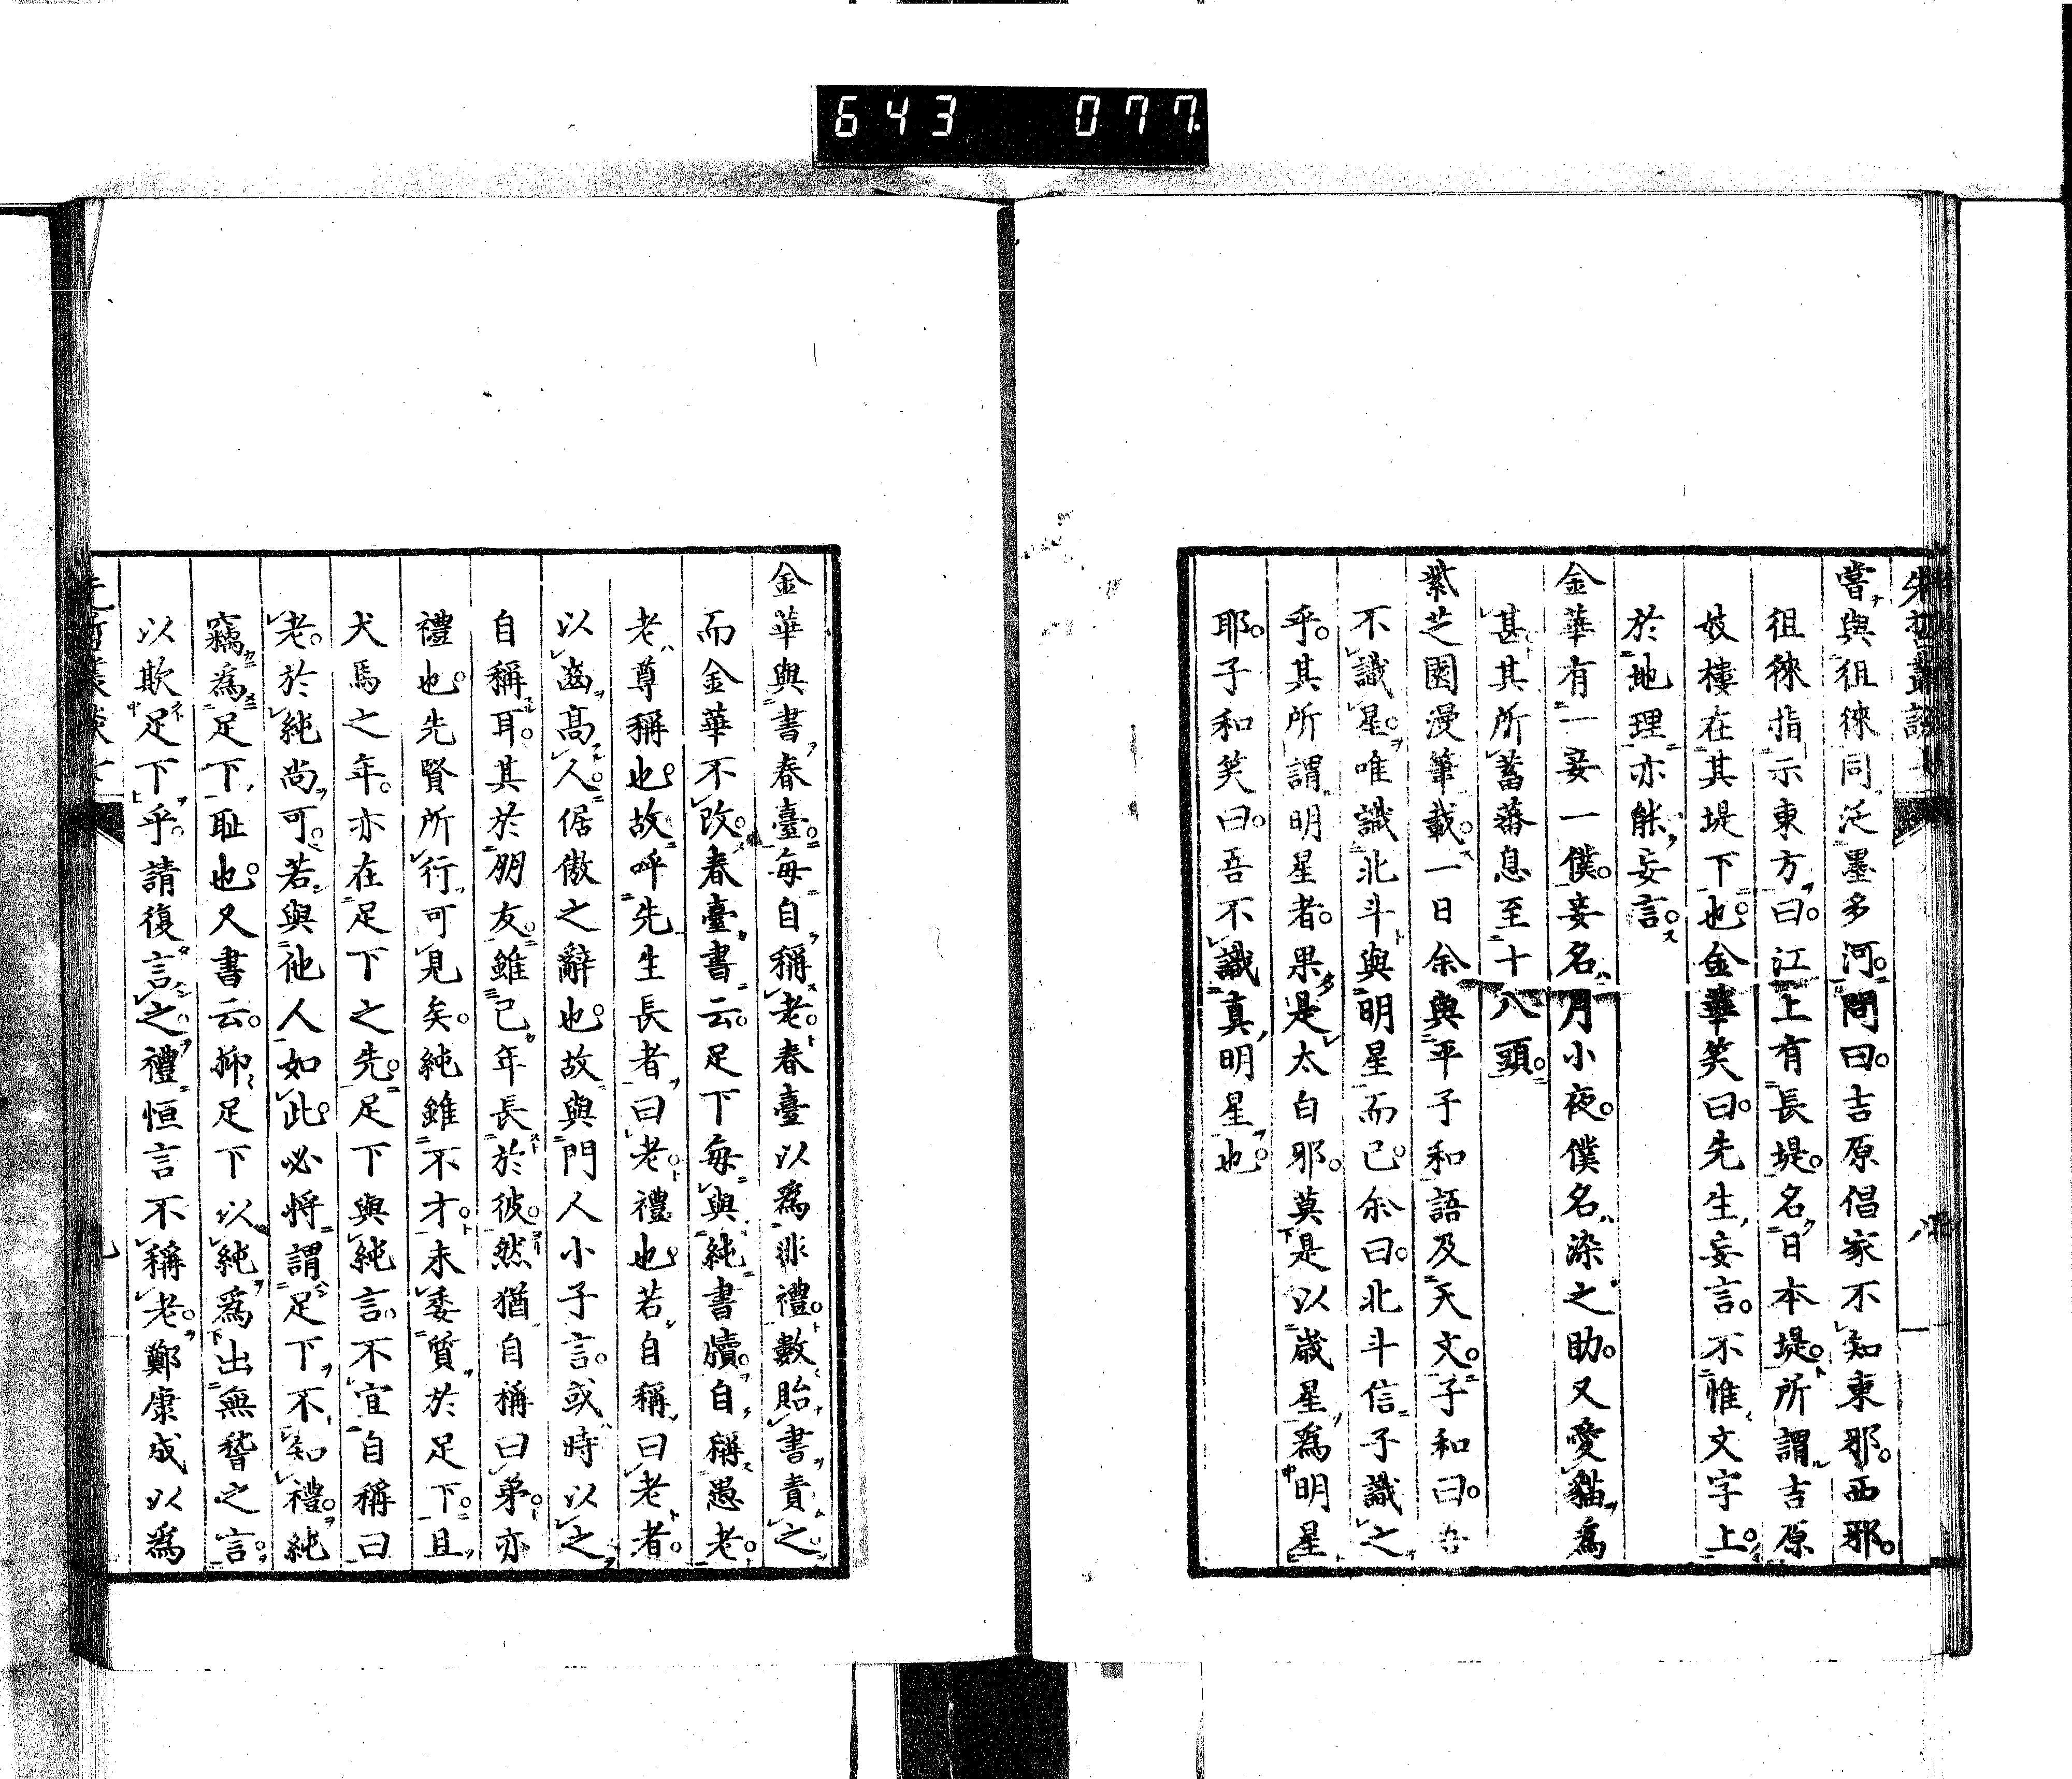 643 077
先哲叢談
嘗與徂徠同泛墨多河。問曰。吉原倡家不知東邪。西邪。
徂徠指示東方曰。江上有長堤。名日本堤。所謂吉原
妓樓在其堤下也。金華笑曰。先生妄言。不惟文字上。
於地理亦能妄言。
金華有一妾一僕。妾名月小夜。僕名染之助。又愛貓爲
甚其所蓄蕃息至十八頭。
紫芝園漫筆載。一日余與平子和語及天文。子和曰。吾
不識星。唯識北斗與明星而已。余曰。北斗信子識之
乎。其所謂明星者。果是太白耶。莫是以歲星爲明星
耶。子和笑曰。吾不識真明星也。
金華與書春臺。每自稱老。春臺以爲非禮。數貽書責之
而金華不改。春臺書云。足下每與純書牘。自稱愚老。
老尊稱也。故呼先生長者曰老。禮也。若自稱曰老者。
以齒高人。倨傲之辭也。故與門人小子言。或時以之
自稱耳。其於朋友。雖己年長於彼。然猶自稱曰弟。亦
禮也。先賢所行可見矣。純雖不才。未委質於足下。且
犬馬之年。亦在足下之先。足下與純言。不宜自稱曰
老。於純尚可。若與他人如此。必將謂足下不知禮。純
竊爲足下恥也。又書云。抑足下以純爲出無稽之言。
以欺足下乎。請復言之。禮恒言不稱老。鄭康成以爲